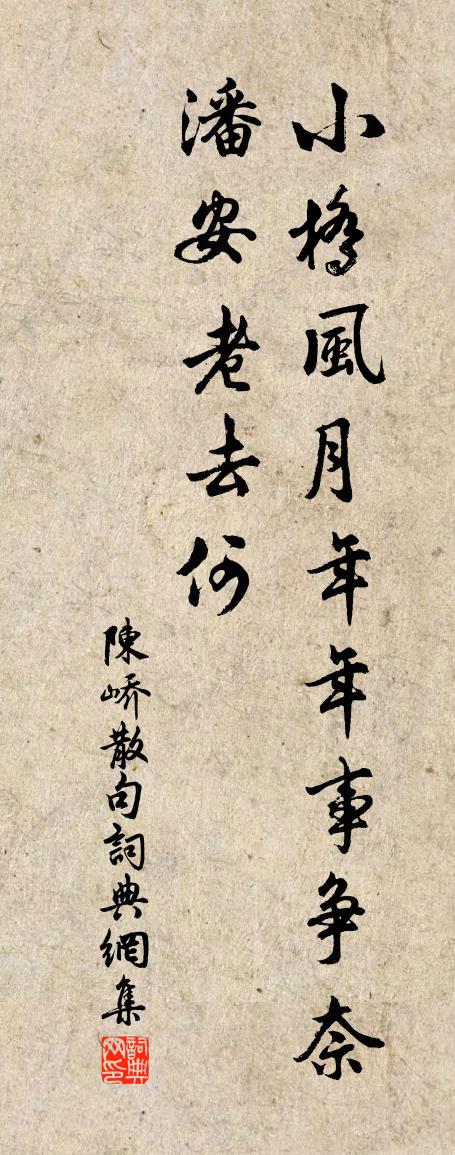 小橋風月年年事争奈
潘安老去何
陳嶠散句詞典網集
詞典網印